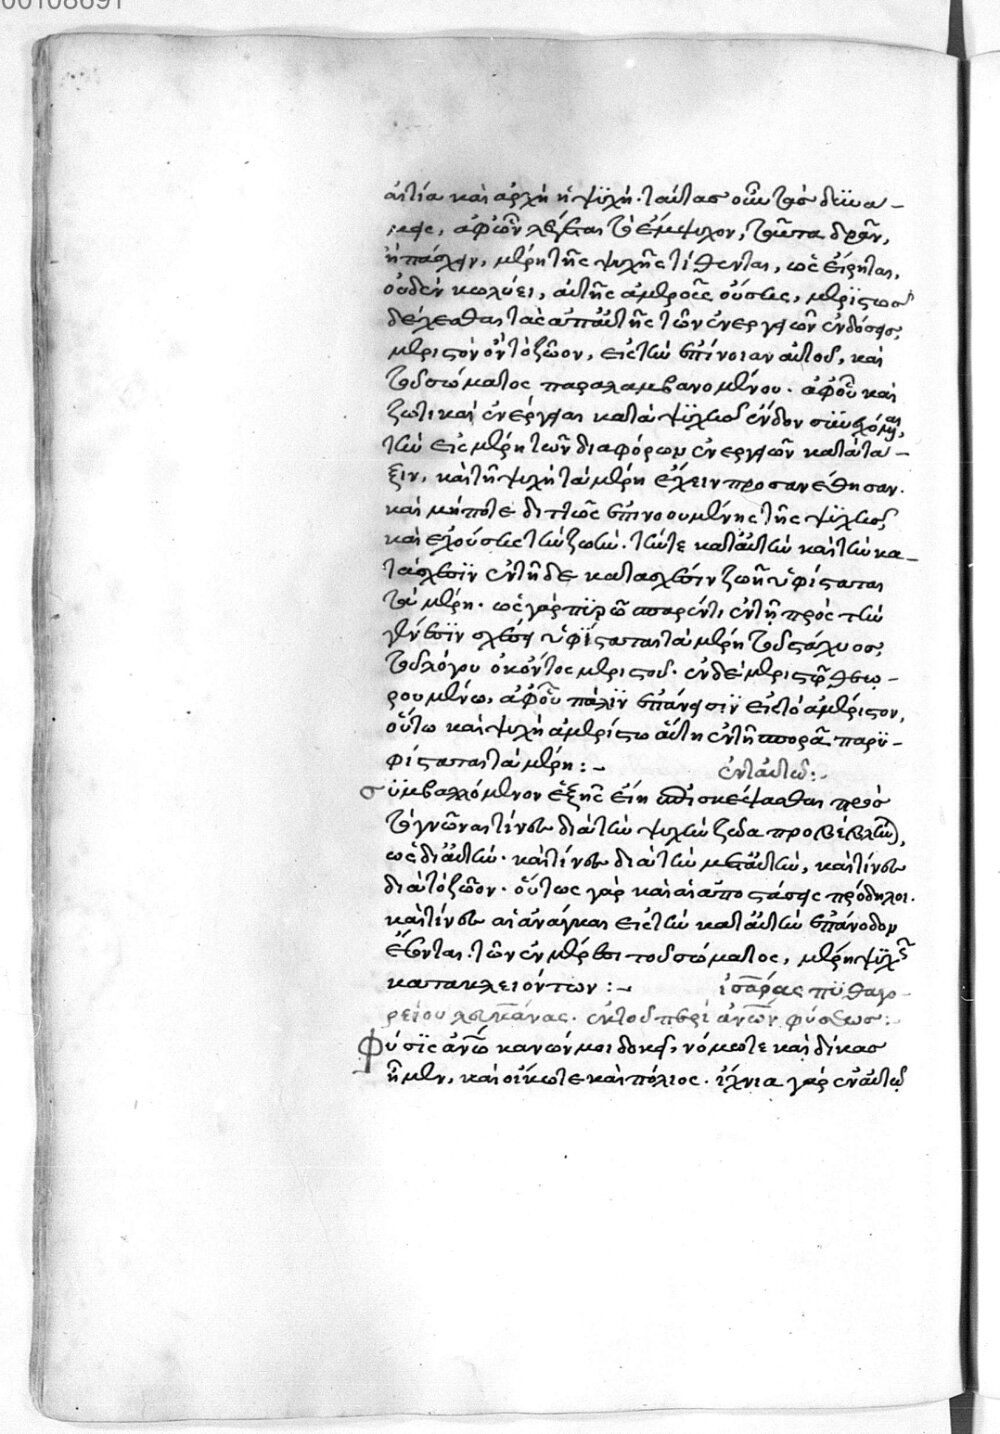 00108691
αἰτία καὶ ἀρχὴ ἡ ψυχή. ταύτας οὖν τὰς δυνά-
μεις, ἀφ' ὧν λέγεται τὸ ἔμψυχον, δρᾶν,
ἢ πάσχειν, μέρη τῆς ψυχῆς τίθενται, ὡς εἴρηται,
οὐδὲν κωλύει, αὐτῆς ἀμεροῦς οὔσης, μεριστῶς
δέχεσθαι τὰς ἀπ' αὐτῆς τῶν ἐνεργειῶν ἐνδόσεις,
μεριστὸν ὂν τὸ ζῶον, εἰς τὴν ἐπίνοιαν αὐτοῦ, καὶ
τοῦ σώματος παραλαμβανομένου. ἀφ' οὗ καὶ
ζωτικαὶ ἐνέργειαι κατὰ ψυχῆς ἔνδον
τὴν εἰς μέρη τῶν διαφόρων ἐνεργειῶν κατάτα-
ξιν, καὶ τῇ ψυχῇ τὰ μέρη ἔχειν προσανέθησαν.
καὶ μήποτε διττῶς ἐπινοουμένης τῆς ψυχῆς
καὶ ἐχούσης τὴν ζωήν. τήν τε καθ' αὑτὴν καὶ τὴν κα-
τὰ σχέσιν ἐν τῇ δὲ κατὰ σχέσιν ζωῇ ὑφίσταται
τὰ μέρη. ὡς γὰρ πυρῷ σπαρέντι, ἐν τῇ πρὸς τὴν
γένεσιν σχέσει ὑφίσταται τὰ μέρη τοῦ στάχυος,
τοῦ λόγου οὐκ ὄντος μεριστοῦ. ἐν δὲ μεριστῷ θεω-
ρουμένῳ, ἀφ' οὗ πάλιν ἐπάνεισιν εἰς τὸ ἀμέριστον,
οὕτω καὶ ψυχῇ ἀμερίστῳ οὔσῃ ἐν τῇ σπορᾷ παρυ-
φίσταται τὰ μέρη :- ἐν ταὐτῷ:-
συμβαλλόμενον ἑξῆς εἴη ἐπισκέψασθαι πρὸς
τὸ γνῶναι τίνα διὰ τὴν ψυχὴν ζῷα προβέβληται,
ὡς δι' αὐτήν. καὶ τίνα διὰ τὴν μετ' αὐτήν, καὶ τίνα
διὰ τὸ ζῶον. οὕτως γὰρ καὶ αἱ ἀποστάσεις πρόδηλοι.
καὶ τίνα αἱ ἀνάγκαι εἰς τὴν καθ' αὑτὴν ἐπάνοδον
ἔσονται. τῶν ἐν μέρεσι τοῦ σώματος, μέρη ψυχῆς
κατακλειόντων :- ἰσάρας πυθαγο-
ρείου λευκανᾶς. ἐκ τοῦ περὶ ἀνθρώπου φύσεως:-
Φύσις ἀνθρώπου κανών μοι δοκεῖ, νόμω τε καὶ δίκας
ἦμεν, καὶ οἴκω τε καὶ πόλιος. ἴχνια γὰρ ἐν αὑτῷ